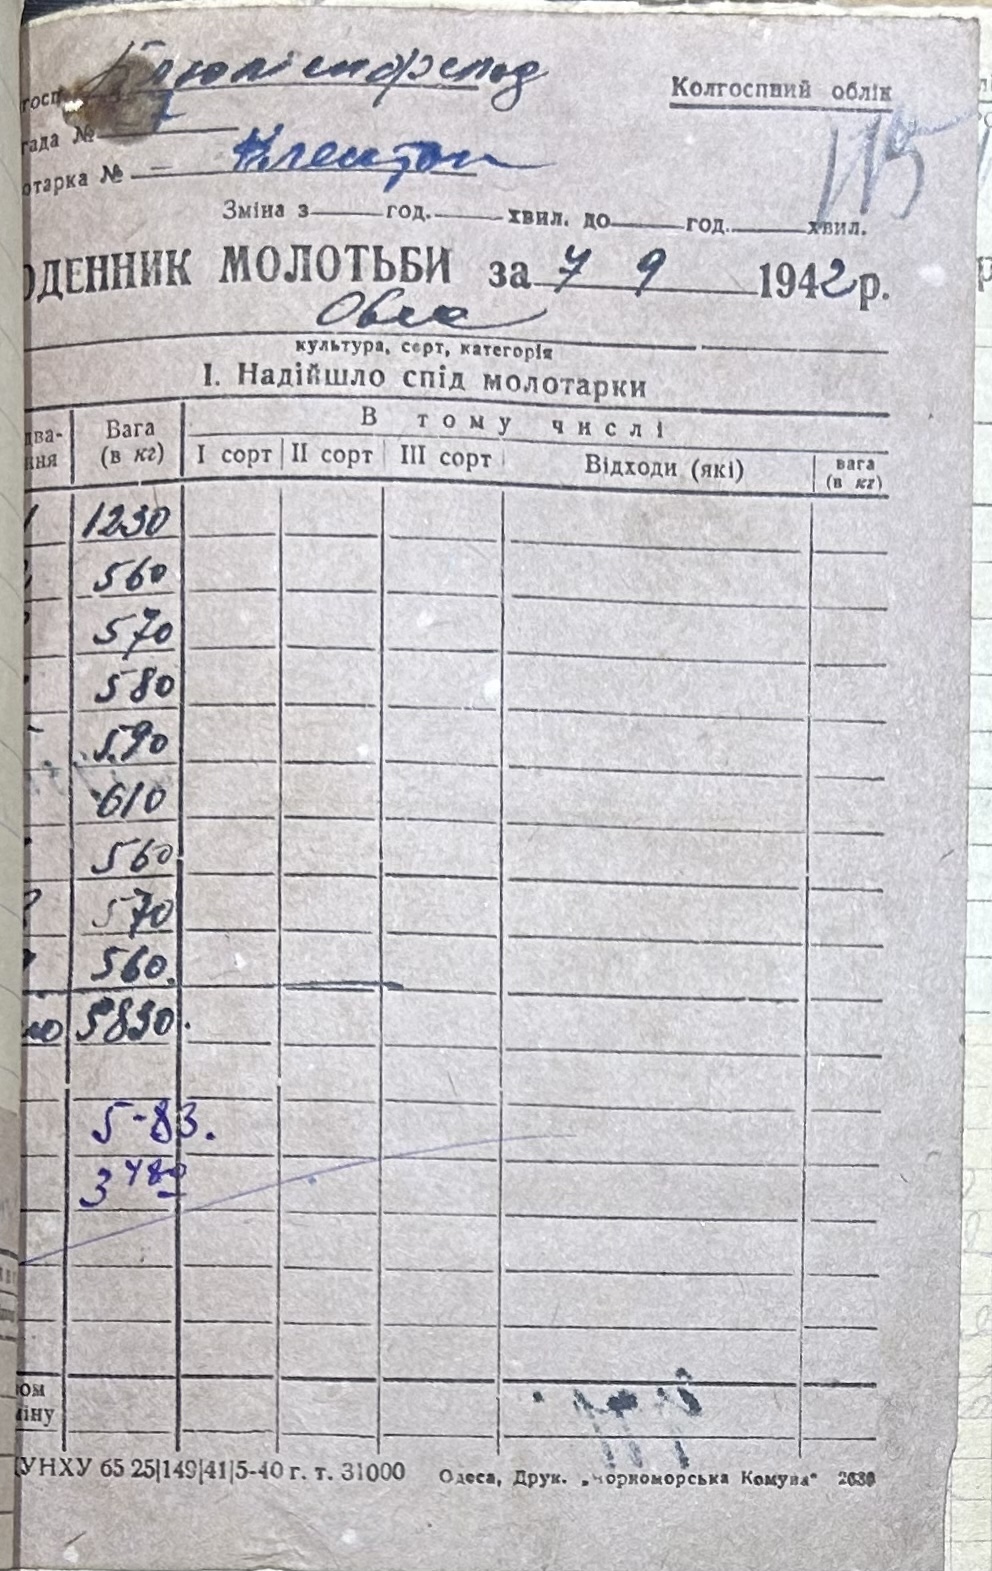 госп
Колгоспний облік
гада № 7
отарка № —
115
Зміна з год. хвил. до год. хвил.
ОДЕННИК МОЛОТЬБИ за 7 9 1942 р.
Овса
культура, серт, категорія
І. Надійшло спід молотарки
В тому числі
ва-
ння
Вага
(в кг)
І сорт ІІ сорт ІІІ сорт Відходи (які) вага
(в кг)
1 1230
2 560
570
580
590
610
560
8 570
560
5830
5-83.
3480
ом
міну
УНХУ 65 25|149|41|5-40 г. т. 31000 Одеса, Друк. „Чорноморська Комуна" 2630